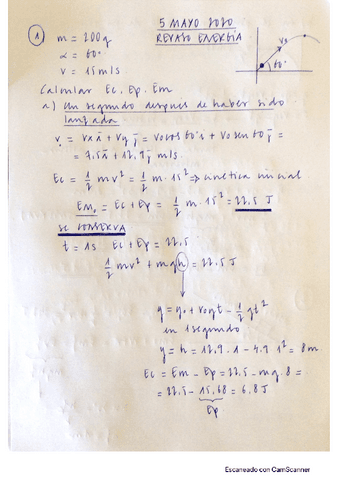 5 MAYO 2020
REPASO ENERGÍA
① m = 200g
α = 60°
v = 15 m/s
v₀
60°
Calcular Ec, Ep, Em
a) Un segundo despues de haber sido
lanzada
v = vx i + vy j = v0 cos 60 i + v0 sen 60 j =
= 7,5 i + 12,9 j m/s.
Ec = 1/2 mv² = 1/2 m · 15² ⇒ cinetica inicial
Em₀ = Ec + Ep = 1/2 m · 15² = 22,5 J
SE CONSERVA
t = 1s Ec + Ep = 22,5
1/2 mv² + mgh = 22,5 J
y = y₀ + v₀y t - 1/2 gt²
en 1 segundo
y = h = 12,9 · 1 - 4,9 · 1² = 8m
Ec = Em - Ep = 22,5 - mg · 8 =
= 22,5 - 15,68 = 6,8 J
Ep
Escaneado con CamScanner